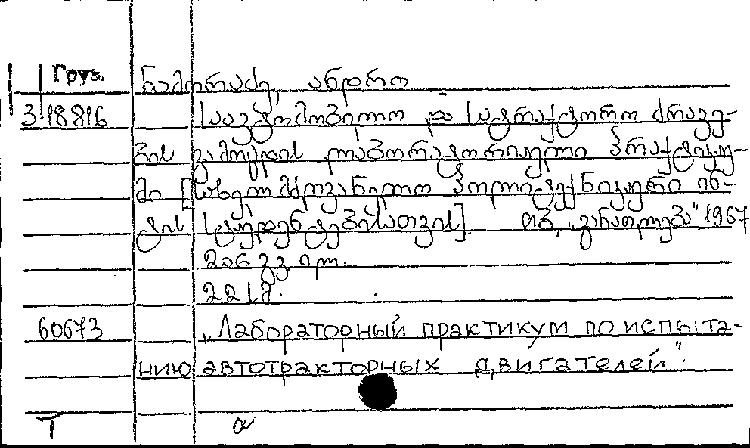 Груз.
ნამორაძე, ანდრო
3-18816 საავტომობილო და სატრაქტორო ძრავე-
ბის გამოცდის ლაბორატორიული პრაქტიკუ-
მი [სახელმძღვანელო პოლიტექნიკური ინ-
ტის სტუდენტებისათვის] თბ. „განათლება" 1967
206 გვ ილ.
60673 „Лабораторный практикум по испыта-
нию автотракторных двигателей".
Т